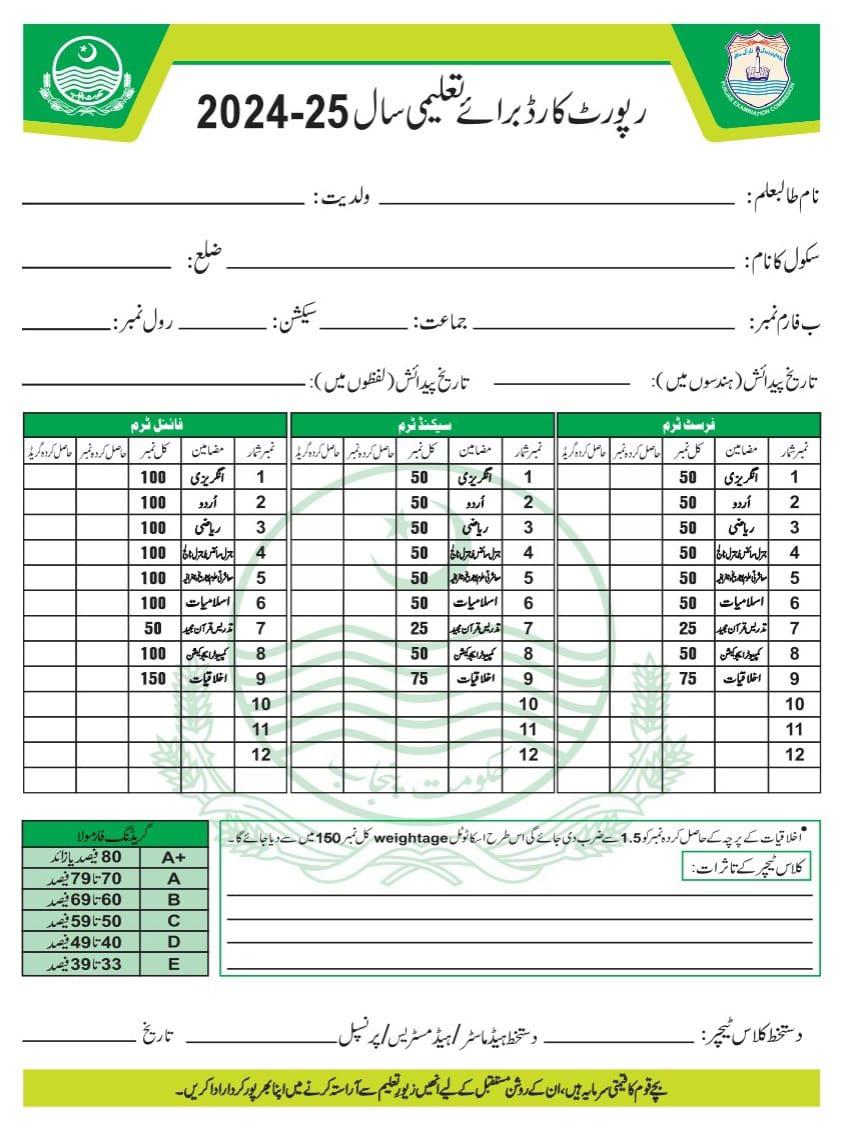 حکومت پنجاب
PUNJAB EXAMINATION COMMISSION
رپورٹ کارڈ برائے تعلیمی سال 25-2024
نام طالبعلم: ولدیت:
سکول کا نام: ضلع:
ب فارم نمبر: جماعت: سیکشن: رول نمبر:
تاریخ پیدائش (ہندسوں میں): تاریخ پیدائش (لفظوں میں):
فرسٹ ٹرم سیکنڈ ٹرم فائنل ٹرم
نمبر شمار مضامین کل نمبر حاصل کردہ نمبر حاصل کردہ گریڈ نمبر شمار مضامین کل نمبر حاصل کردہ نمبر حاصل کردہ گریڈ نمبر شمار مضامین کل نمبر حاصل کردہ نمبر حاصل کردہ گریڈ
1 انگریزی 50 1 انگریزی 50 1 انگریزی 100
2 اُردو 50 2 اُردو 50 2 اُردو 100
3 ریاضی 50 3 ریاضی 50 3 ریاضی 100
4 جنرل سائنس 50 4 جنرل سائنس 50 4 جنرل سائنس 100
5 معاشرتی علوم 50 5 معاشرتی علوم 50 5 معاشرتی علوم 100
6 اسلامیات 50 6 اسلامیات 50 6 اسلامیات 100
7 تدریس قرآن مجید 25 7 تدریس قرآن مجید 25 7 تدریس قرآن مجید 50
8 کمپیوٹر ایجوکیشن 50 8 کمپیوٹر ایجوکیشن 50 8 کمپیوٹر ایجوکیشن 100
9 اخلاقیات 75 9 اخلاقیات 75 9 اخلاقیات 150
10 10 10
11 11 11
12 12 12
حکومت پنجاب
•اخلاقیات کے پرچہ کے حاصل کردہ نمبر کو 1.5 سے ضرب دی جائے گی اس طرح اسکا ٹوٹل weightage کل نمبر 150 میں سے دیا جائے گا۔
کلاس ٹیچر کے تاثرات:
گریڈنگ فارمولا
A+ 80 فیصد یا زائد
A 70 تا 79 فیصد
B 60 تا 69 فیصد
C 50 تا 59 فیصد
D 40 تا 49 فیصد
E 33 تا 39 فیصد
دستخط کلاس ٹیچر: دستخط ہیڈ ماسٹر/ہیڈ مسٹریس/پرنسپل تاریخ
بچے قوم کا قیمتی سرمایہ ہیں، ان کے روشن مستقبل کے لیے انھیں زیورِ تعلیم سے آراستہ کرنے میں اپنا بھرپور کردار ادا کریں۔